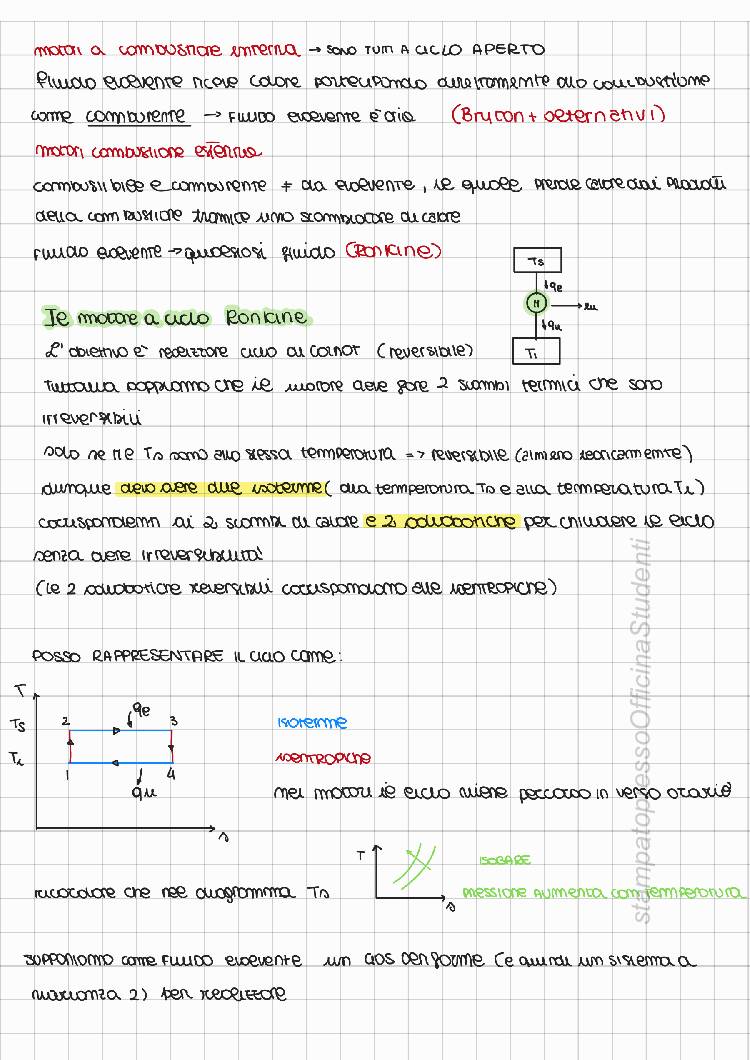 motori a combustione interna → SONO TUTTI A CICLO APERTO
fluido evolvente riceve calore partecipando direttamente alla combustione
come comburente → FLUIDO evolvente è aria (Bryton + alternativi)
motori combustione esterna
combustibile e comburente ≠ da evolvente, il quale prende calore dai prodotti
della combustione tramite uno scambiatore di calore
FLUIDO evolvente → qualsiasi fluido (Rankine)
Ts
qe
M
lu
qu
Ti
Il motore a ciclo Rankine
L'obiettivo è realizzare ciclo di Carnot (reversibile)
Tuttavia sappiamo che il motore deve fare 2 scambi termici che sono
irreversibili
solo se Ti e Ts sono alla stessa temperatura => reversibile (almeno teoricamente)
dunque devo avere due isoterme (alla temperatura Ts e alla temperatura Ti)
corrispondenti ai 2 scambi di calore e 2 adiabatiche per chiudere il ciclo
senza avere irreversibilità
(le 2 adiabatiche reversibili corrispondono alle isentropiche)
POSSO RAPPRESENTARE IL CICLO COME:
T
qe
Ts 2 3
Ti
1 4
qu
s
isoterme
isentropiche
nei motori il ciclo viene percorso in verso orario
T
s
ISOBARE
ricordare che nel diagramma Ts
PRESSIONE AUMENTA CON TEMPERATURA
SUPPONIAMO come FLUIDO evolvente un gas performe (e quindi un sistema a
varianza 2) per realizzare
stampatopressoOfficinaStudenti